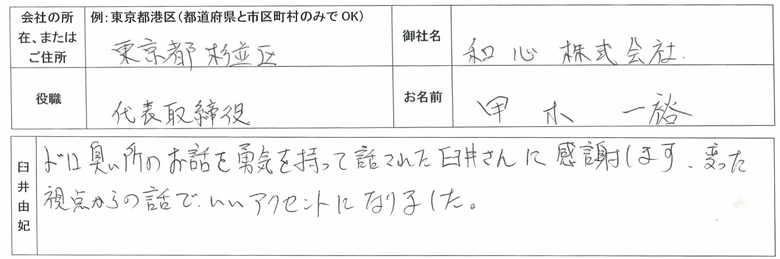 会社の所在、またはご住所
例：東京都港区（都道府県と市区町村のみでOK）
東京都 杉並区
御社名
和心 株式会社.
役職
代表取締役
お名前
甲木 一裕
臼井由妃
ドロ臭い所のお話を勇気を持って話された臼井さんに感謝します、変った
視点からの話で、いいアクセントになりました。